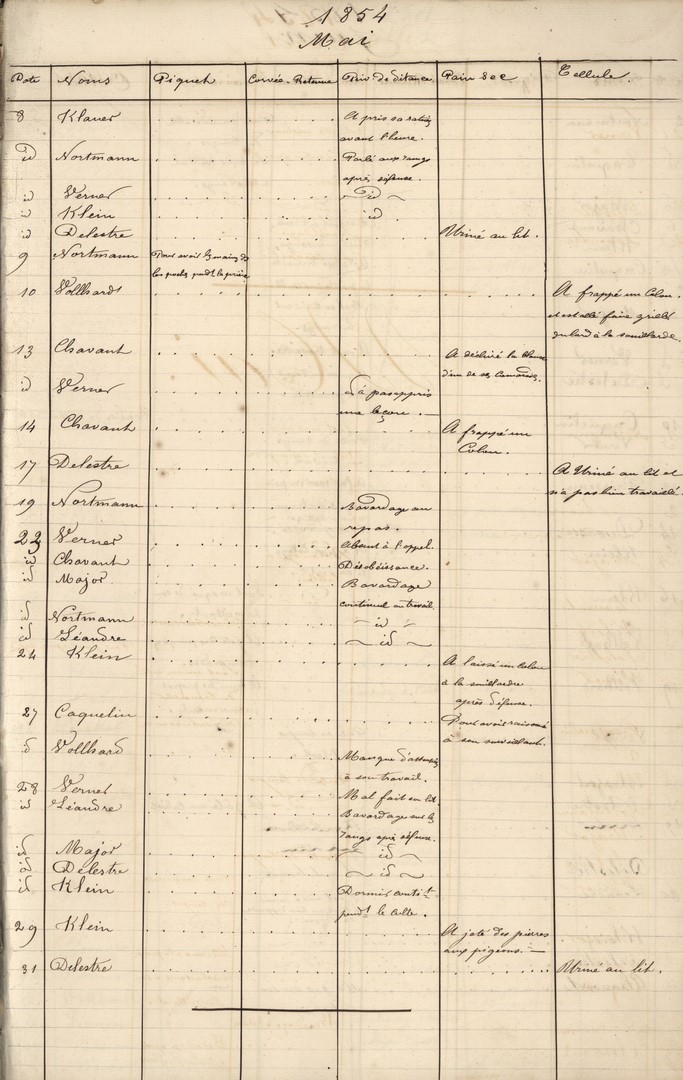 1854
Mai
Date Noms Piquet Corvée - Retenue Priv de distance Pain Sec Cellule.
8 Klauer A pris sa ration
avant l'heure.
id Nortmann Parlé aux rangs
après défense.
id Verner id
id Klein id
id Delestre Uriné au lit.
9 Nortmann Pour avoir les mains de
les poches pendt la prière
10 Vollhardt A frappé un Colon
et est allé faire griller
du lard à la souillarde.
13 Chavant A déchiré la blouse
d'un de ses Camarades.
id Verner à pas appris
une leçon.
14 Chavant A frappé un
Colon.
17 Delestre A Uriné au lit et
n'a pas bien travaillé.
19 Nortmann Bavardage au
repas.
22 Verner Absent à l'appel.
id Chavant Désobéissance.
id Major Bavardage
continuel au travail.
id Nortmann id
id Léandre id
24 Klein A laissé un Colon
à la souillarde
après défense.
27 Caquelin Pour avoir raisonné
à son surveillant.
d Vollhard Manque d'attention
à son travail.
28 Verner Mal fait son lit.
id Léandre Bavardage sur les
rangs après défense.
id Major id
id Delestre id
id Klein Dormir
pendt le culte.
29 Klein A jeté des pierres
aux pigeons.
31 Delestre Uriné au lit.